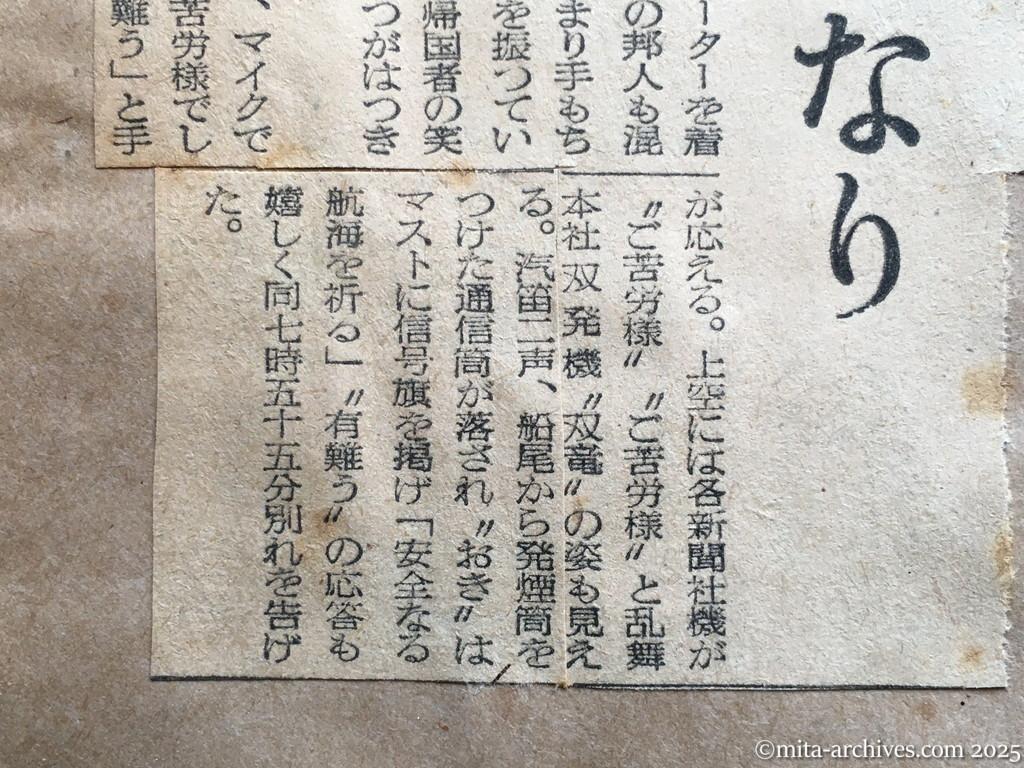 なり
ーターを着
の邦人も混
まり手もち
を振つてい
帰国者の笑
つがはつき
、マイクで
苦労様でし
難う」と手
が応える。上空には各新聞社機が
〝ご苦労様〟〝ご苦労様〟と乱舞
本社双発機〝双竜〟の姿も見え
る。汽笛二声、船尾から発煙筒を
つけた通信筒が落され〝おき〟は
マストに信号旗を掲げ「安全なる
航海を祈る」〝有難う〟の応答も
嬉しく同七時五十五分別れを告げ
た。
©mita-archives.com 2025